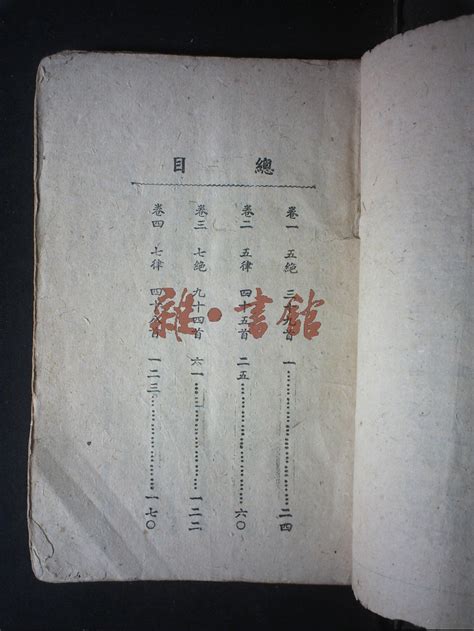 總目
卷一 五絕 三十九首 一……二四
卷二 五律 四十五首 二五……六〇
卷三 七絕 九十四首 六一……一二二
卷四 七律 四十 首 一二三……一七〇
雜·書館